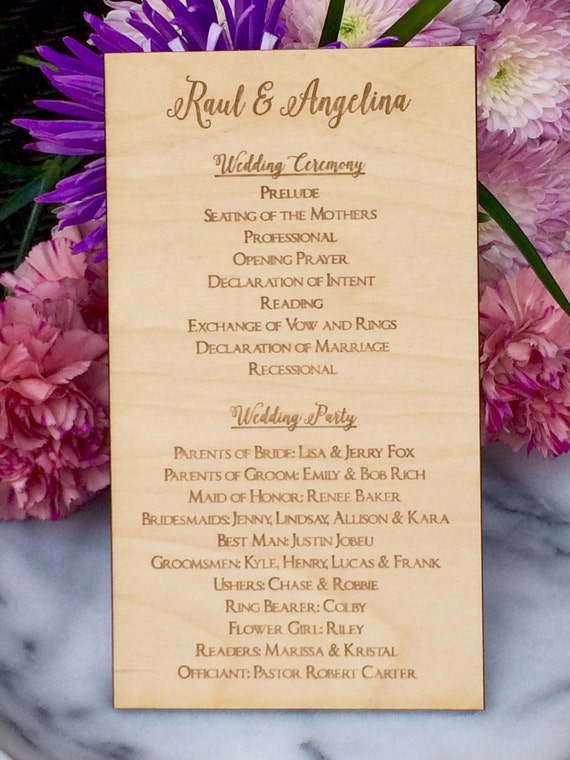 Raul & Angelina
Wedding Ceremony
Prelude
Seating of the Mothers
Professional
Opening Prayer
Declaration of Intent
Reading
Exchange of Vow and Rings
Declaration of Marriage
Recessional
Wedding Party
Parents of Bride: Lisa & Jerry Fox
Parents of Groom: Emily & Bob Rich
Maid of Honor: Renee Baker
Bridesmaids: Jenny, Lindsay, Allison & Kara
Best Man: Justin Jobeu
Groomsmen: Kyle, Henry, Lucas & Frank
Ushers: Chase & Robbie
Ring Bearer: Colby
Flower Girl: Riley
Readers: Marissa & Kristal
Officiant: Pastor Robert Carter